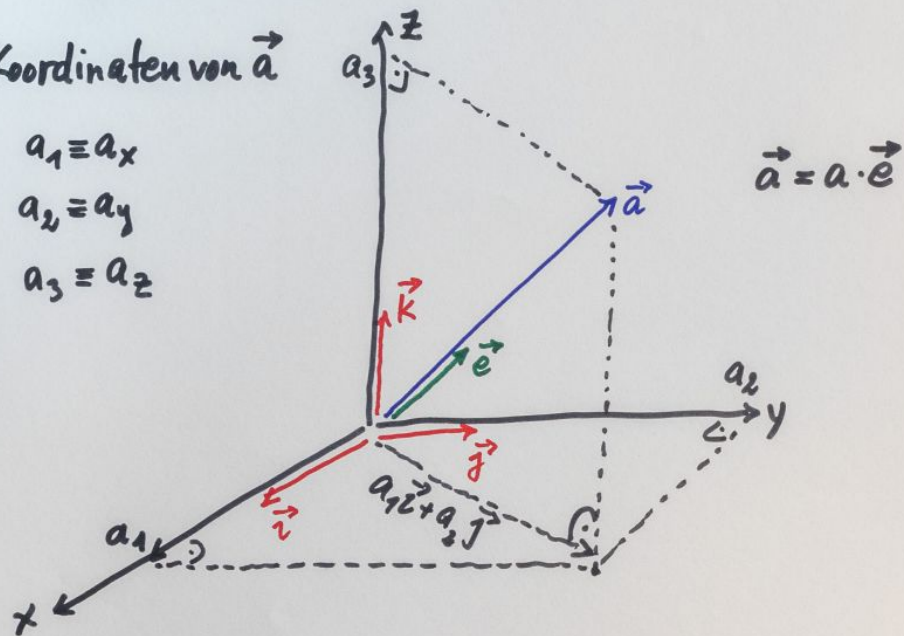 Koordinaten von a⃗
a₁ ≡ aₓ
a₂ ≡ a_y
a₃ ≡ a_z
z
a₃
a⃗
a⃗ = a · e⃗
k⃗
e⃗
a₂
y
j⃗
i⃗
a₁i⃗ + a₂j⃗
a₁
x